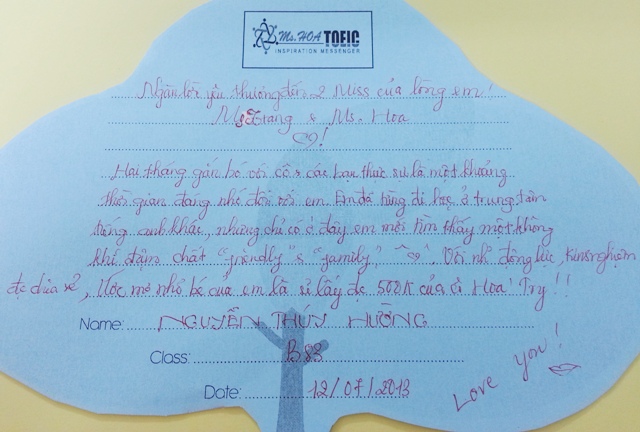 Ms. HOA TOEIC
INSPIRATION MESSENGER
Ngàn lời yêu thương đến 2 Miss của lòng em!
Ms Trang & Ms. Hoa
♡!
Hai tháng gắn bó với cô & các bạn thực sự là một khoảng
thời gian đáng nhớ đối với em. Em đã từng đi học ở trung tâm
tiếng anh khác, nhưng chỉ có ở đây em mới tìm thấy một không
khí đậm chất "friendly" & "family", ♡. Với những động lực, kinh nghiệm
đc chia sẻ, Ước mơ nhỏ bé của em là sẽ lấy đc 500K của cô Hoa! Try!!
Name: NGUYỄN THÚY HƯỜNG
Class: B83
Date: 12/07/2013
Love you!